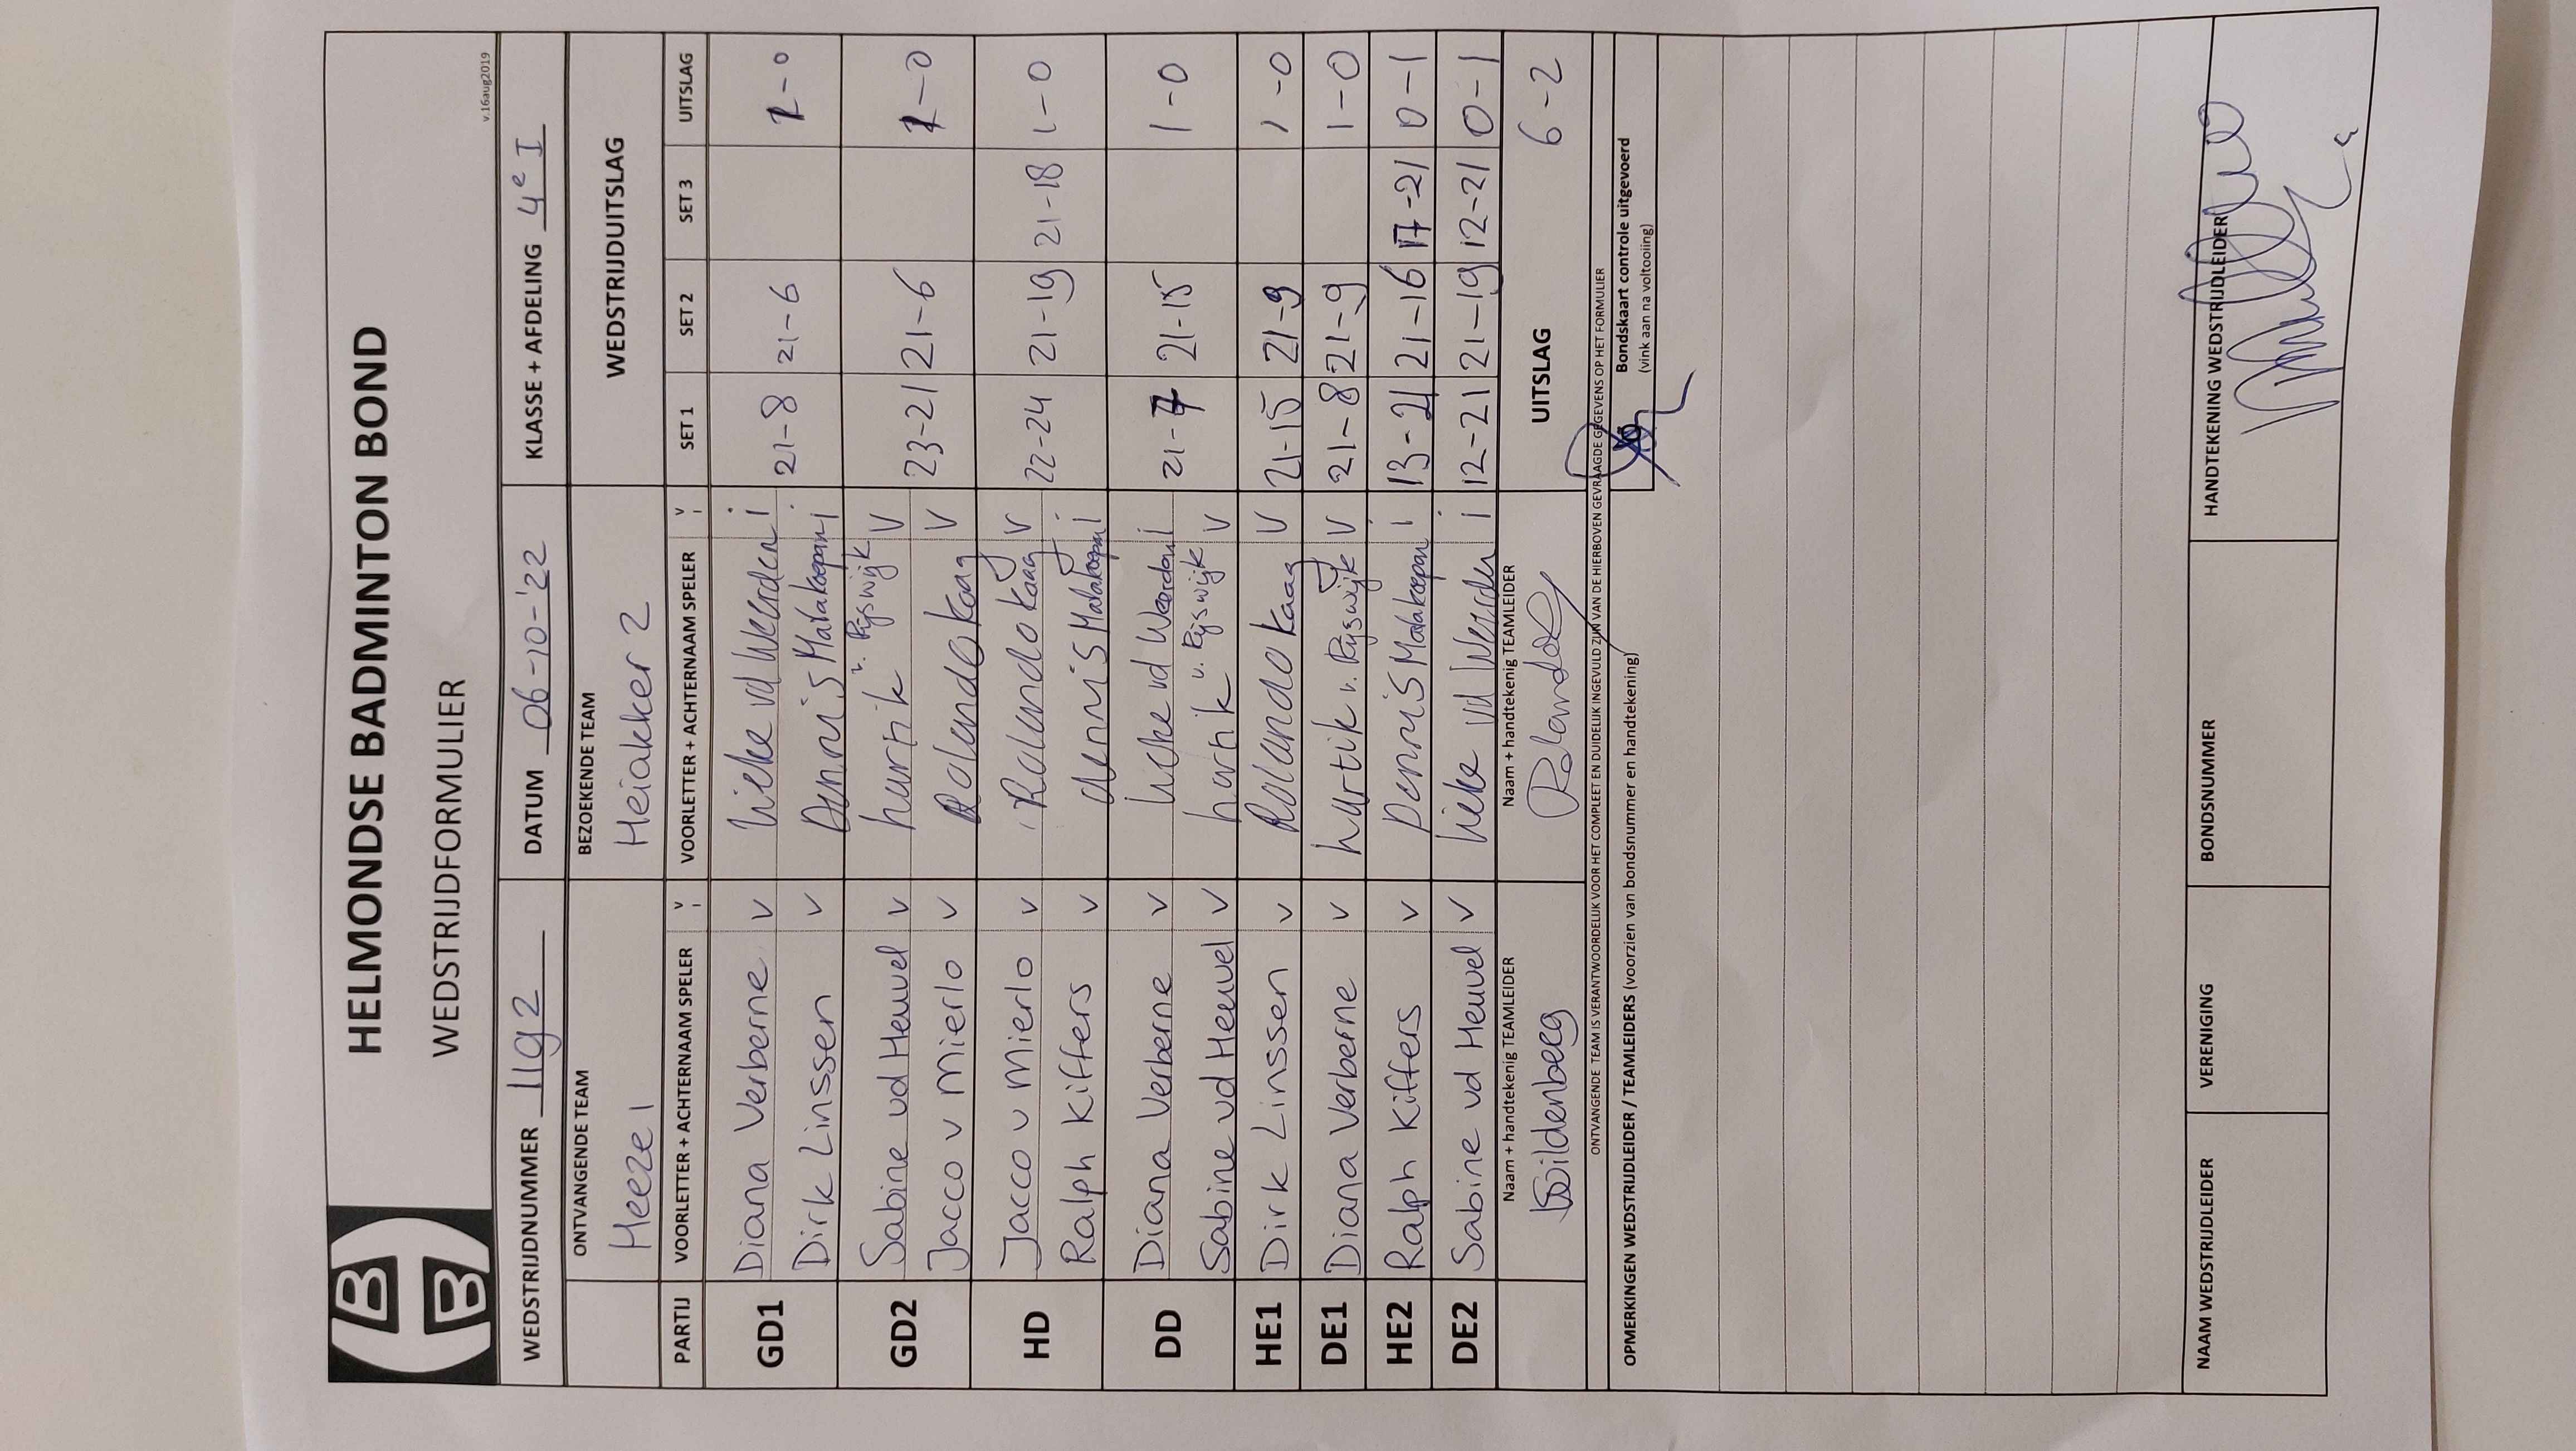 HELMONDSE BADMINTON BOND
WEDSTRIJDFORMULIER
v.16aug2019
WEDSTRIJDNUMMER 1192 DATUM 06-10-'22 KLASSE + AFDELING 4e I
ONTVANGENDE TEAM BEZOEKENDE TEAM WEDSTRIJDUITSLAG
Heeze 1 Heiakker 2
PARTIJ VOORLETTER + ACHTERNAAM SPELER v i VOORLETTER + ACHTERNAAM SPELER v i SET 1 SET 2 SET 3 UITSLAG
GD1 Diana Verberne v Lieke vd Weerden i 21-8 21-6 1-0
Dirk Linssen v Dennis i
GD2 Sabine vd Heuvel v hartik v. Rijswijk V 23-21 21-6 1-0
Jacco v Mierlo v Rolando Kaag V
HD Jacco v Mierlo v Rolando Kaag V 22-24 21-19 21-18 1-0
Ralph Kiffers v dennis i
DD Diana Verberne v Lieke vd Weerden i 21-7 21-15 1-0
Sabine vd Heuvel v hartik v. Rijswijk V
HE1 Dirk Linssen v Rolando Kaag V 21-15 21-9 1-0
DE1 Diana Verberne v hartik v. Rijswijk V 21-8 21-9 1-0
HE2 Ralph Kiffers v Dennis i 13-21 21-16 17-21 0-1
DE2 Sabine vd Heuvel v Lieke vd Weerden i 12-21 21-19 12-21 0-1
Naam + handtekenig TEAMLEIDER Naam + handtekenig TEAMLEIDER UITSLAG 6-2
Bildenbeeg Rolando
ONTVANGENDE TEAM IS VERANTWOORDELIJK VOOR HET COMPLEET EN DUIDELIJK INGEVULD ZIJN VAN DE HIERBOVEN GEVRAAGDE GEGEVENS OP HET FORMULIER
OPMERKINGEN WEDSTRIJDLEIDER / TEAMLEIDERS (voorzien van bondsnummer en handtekening)
Bondskaart controle uitgevoerd
(vink aan na voltooiing)
NAAM WEDSTRIJDLEIDER VERENIGING BONDSNUMMER HANDTEKENING WEDSTRIJDLEIDER